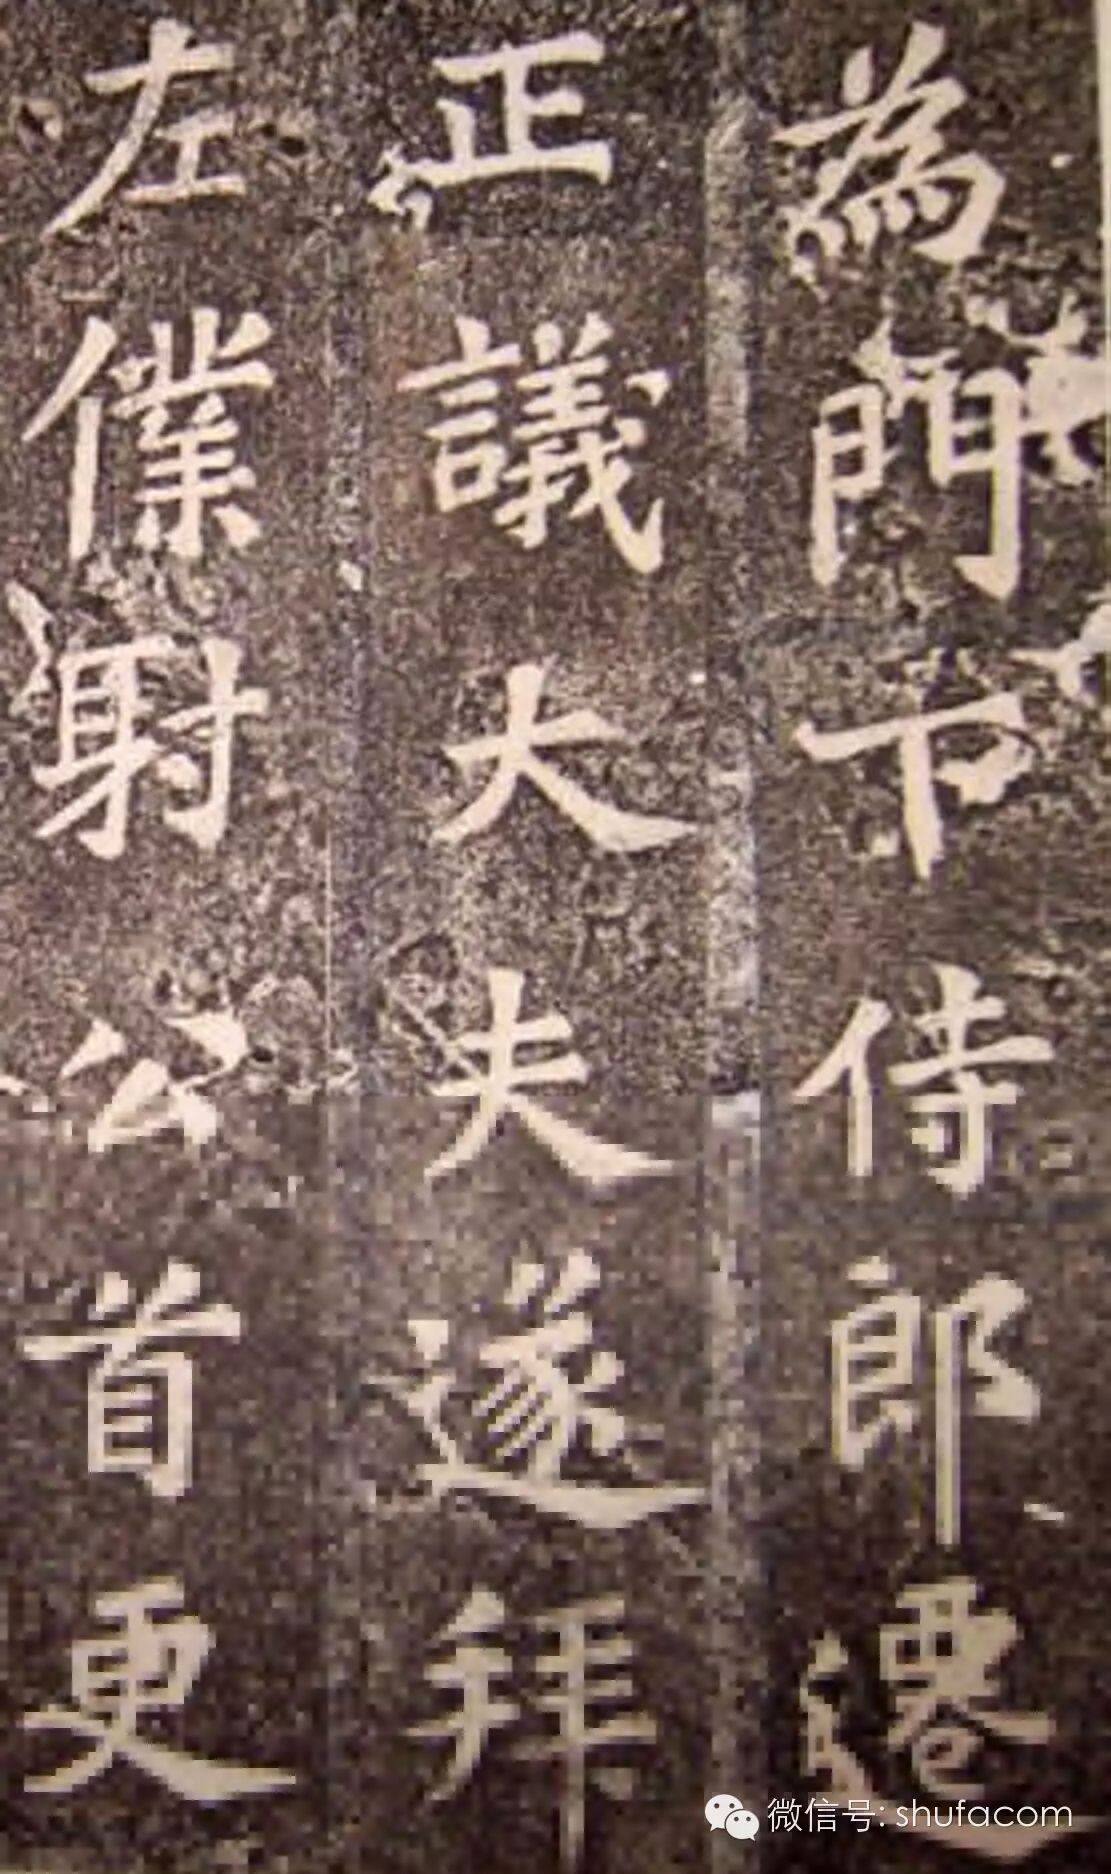 為門下侍郎遷
正議大夫遂拜
左僕射公首更
微信号: shufacom